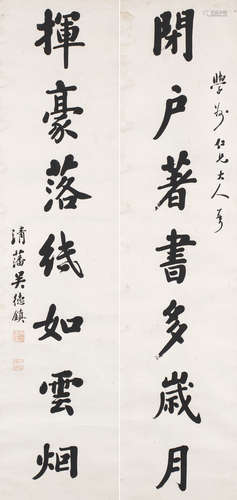 學仁兄大人
閉户著書多歲月
揮豪落紙如雲烟
清藩吴德鎮